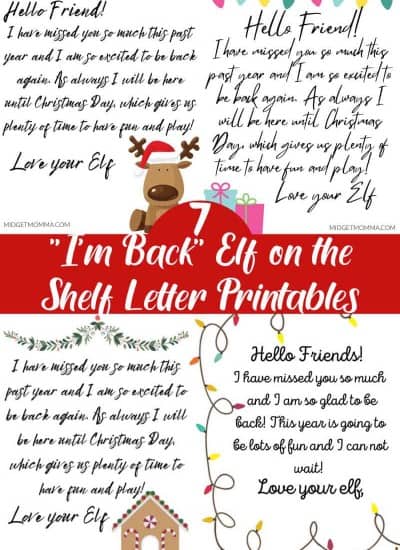 Hello Friend!
I have missed you so much this
past year and I am so excited to be back
again. As always I will be here
until Christmas Day, which gives us
plenty of time to have fun and play!
Love your Elf
MIDGETMOMMA.COM
Hello Friend!
I have missed you so much this
past year and I am so excited to
be back again. As always I
will be here until Christmas
Day, which gives us plenty of
time to have fun and play!
Love your Elf
MIDGETMOMMA.COM
7
"I'm Back" Elf on the
Shelf Letter Printables
I have missed you so much this
past year and I am so excited to
be back again. As always I will
be here until Christmas Day,
which gives us plenty of time to
have fun and play!
Love your Elf
Hello Friends!
I have missed you so much
and I am so glad to be
back! This year is going to
be lots of fun and I can not
wait!
Love your elf,